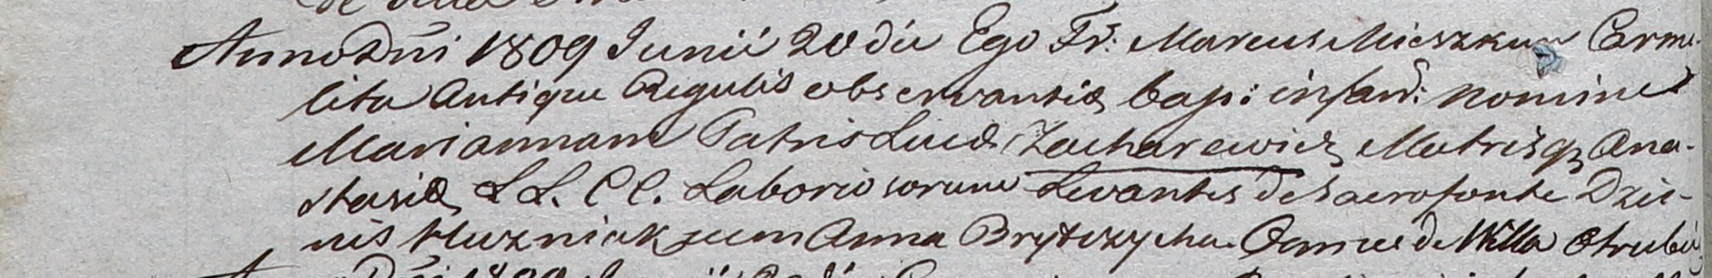 de villa
Anno Dñi 1809 Junii 20 die Ego Fr: Marcus Mieszkun Carme-
lita Antique Regulis observantiæ bap: infan: nomine
Mariannam Patris Lucæ Zacharewicz Matrisqz Ana-
stasiæ LL. CC. Laboriosorum Levantes de Sacrofonte Dzie-
nis Kuzniak cum Anna Brytczycha Omnes de Willa
Anno Dñi 1809 Junii